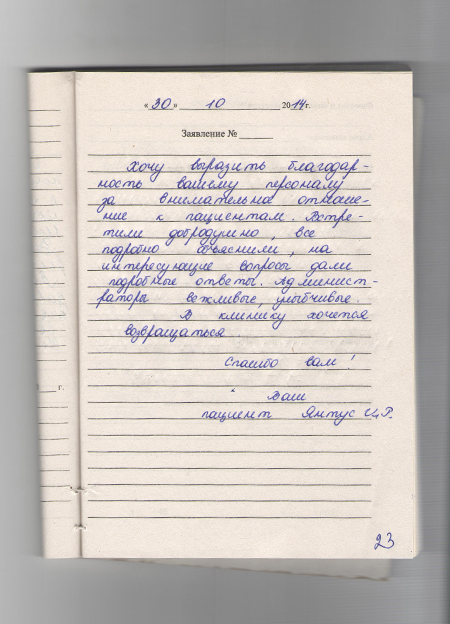 « 30 » 10 2014 г.
Заявление № ______
Хочу выразить благодар-
ность вашему персоналу
за внимательное отноше-
ние к пациентам. Встре-
тили добродушно, все
подробно объяснили, на
интересующие вопросы дали
подробные ответы. Админист-
раторы вежливые, улыбчивые.
В клинику хочется
возвращаться.
Спасибо вам!
Ваш
пациент Янтус И.Р.
г.
23